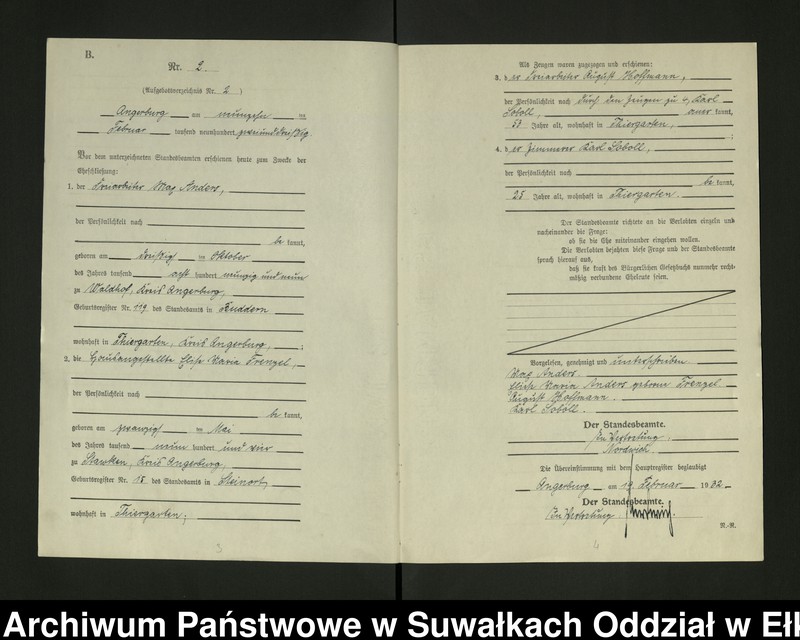 B.
Nr. 2.
(Aufgebotsverzeichnis Nr. 2 )
Angerburg am neunzehn ten
Februar tausend neunhundert zweiunddreißig.
Vor dem unterzeichneten Standesbeamten erschienen heute zum Zwecke der
Eheschließung:
1. der Forstarbeiter Max Anders,
der Persönlichkeit nach
be kannt,
geboren am dreißig ten Oktober
des Jahres tausend acht hundert neunzig und neun
zu Waldhof, Kreis Angerburg,
Geburtsregister Nr. 119 des Standesamts in Kuddern
wohnhaft in Thiergarten, Kreis Angerburg,
2. die Hausangestellte Elise Maria Frenzel,
der Persönlichkeit nach
be kannt,
geboren am zwanzig ten Mai
des Jahres tausend neun hundert und vier
zu Stawken, Kreis Angerburg,
Geburtsregister Nr. 15 des Standesamts in Steinort,
wohnhaft in Thiergarten;
3
Als Zeugen waren zugezogen und erschienen:
3. der Forstarbeiter August Hoffmann,
der Persönlichkeit nach durch den Zeugen zu 4, Karl
Soboll, aner kannt,
53 Jahre alt, wohnhaft in Thiergarten,
4. der Zimmerer Karl Soboll,
der Persönlichkeit nach
be kannt,
25 Jahre alt, wohnhaft in Thiergarten.
Der Standesbeamte richtete an die Verlobten einzeln und
nacheinander die Frage:
ob sie die Ehe miteinander eingehen wollen.
Die Verlobten bejahten diese Frage und der Standesbeamte
sprach hierauf aus,
daß sie kraft des Bürgerlichen Gesetzbuchs nunmehr recht-
mäßig verbundene Eheleute seien.
Vorgelesen, genehmigt und unterschrieben
Max Anders.
Elise Maria Anders geborene Frenzel
August Hoffmann.
Karl Soboll.
Der Standesbeamte.
In Vertretung
Die Übereinstimmung mit dem Hauptregister beglaubigt
Angerburg am 19. Februar 1932
Der Standesbeamte.
In Vertretung
N.-N.
4
Archiwum Państwowe w Suwałkach Oddział w Ełk